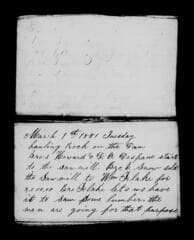 March 1st 1881 Tuesday
hauling Rock on the Dam
Bros Howard & D. B. start
to the saw mill. Bro A. Snow sold
the Sawmill to Wm Flake for
Bro Flake lets us have
it to saw some lumber. the
men are going for that purpose